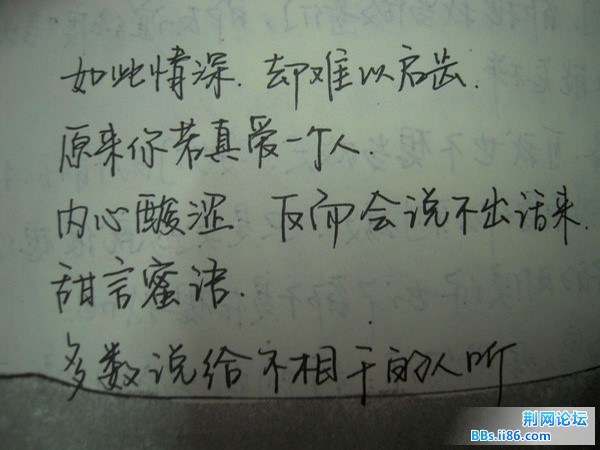 如此情深. 却难以启齿.
原来你若真爱一个人.
内心酸涩 反而会说不出话来.
甜言蜜语.
多数说给不相干的人听
荆网论坛
BBs.ii86.com